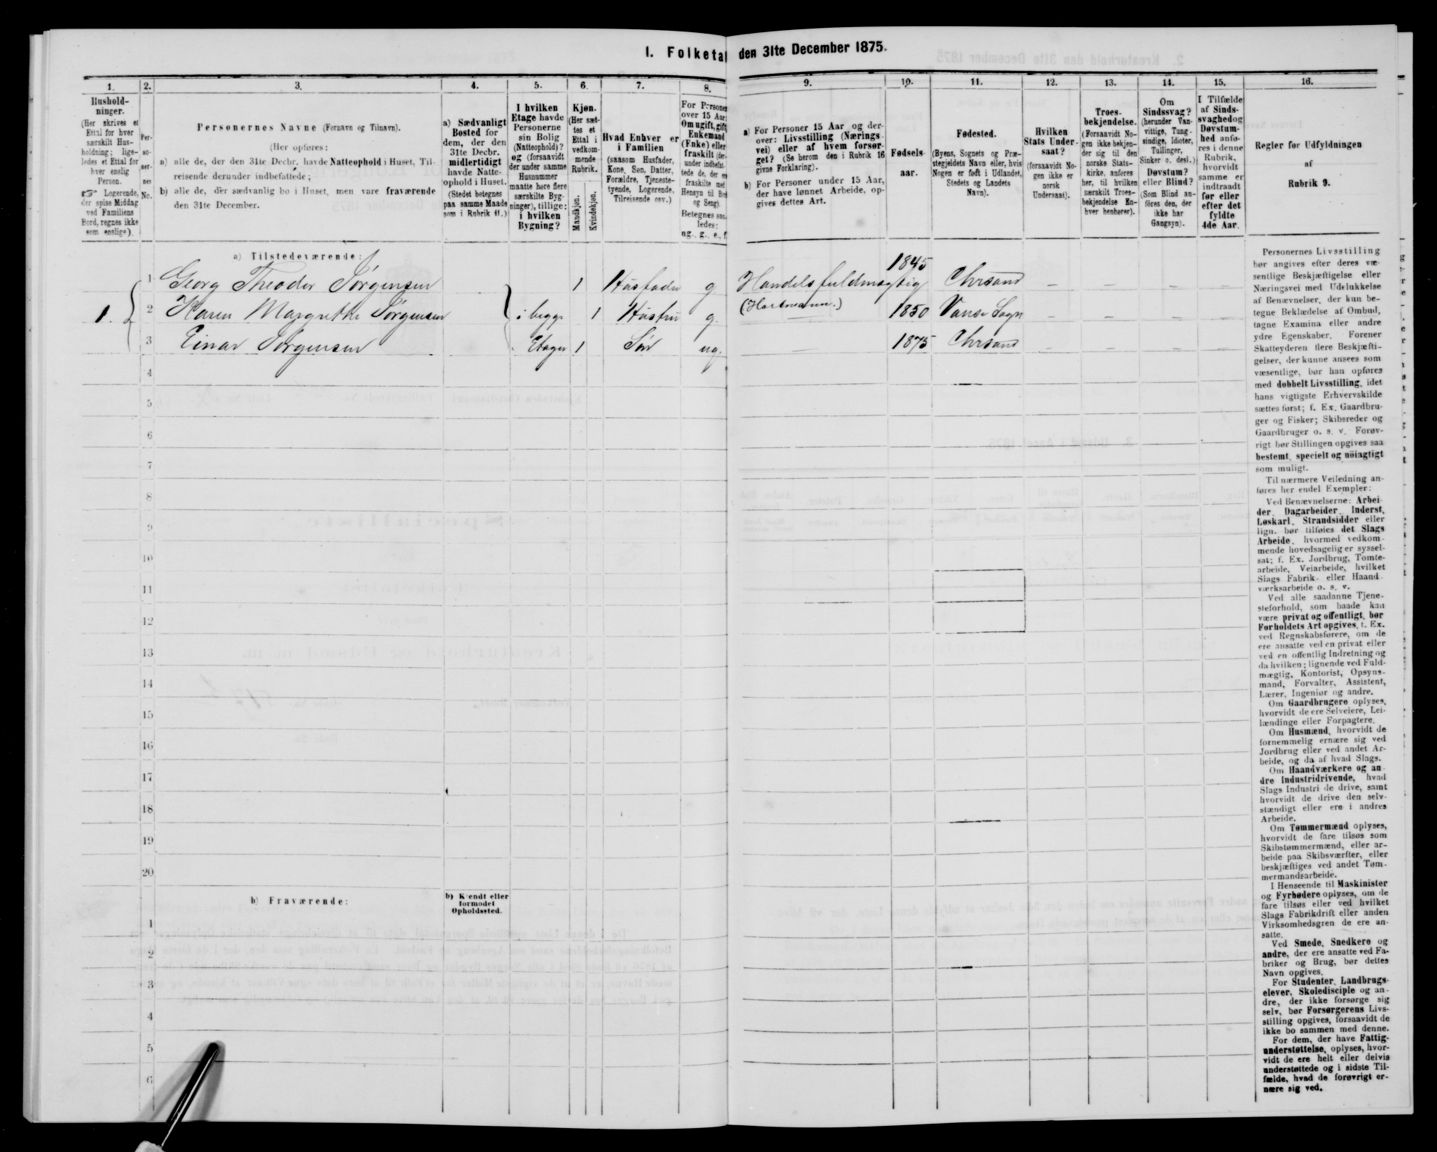 1. Folketal den 31te December 1875.
1.
Husholdninger.
(Her skrives et
Ettal for hver
særskilt Husholdning;
ligeledes et Ettal for
hver enslig
Person.
Logerende,
der spise Middag
ved Familiens
Bord, regnes ikke
som enslige).
2.
Personernes
No.
3.
Personernes Navne (Fornavn og Tilnavn).
(Her opføres:
a) alle de, der den 31te Decbr. havde Natteophold i Huset, Tilreisende derunder indbefattede;
b) alle de, der sædvanlig bo i Huset, men vare fraværende
den 31te December.
4.
a) Sædvanligt
Bosted for
dem, der den
31te Decbr.
midlertidigt
havde Natteophold i Huset.
(Stedet betegnes
paa samme Maade
som i Rubrik 11.)
5.
I hvilken
Etage havde
Personerne
sin Bolig
(Natteophold)?
og (forsaavidt
der under samme
Husnummer
maatte høre flere
særskilte Bygninger), tillige:
i hvilken
Bygning?
6.
Kjøn.
(Her sættes et
Ettal i
vedkommende
Rubrik.
Mandkjøn.
Kvindekjøn.
7.
Hvad Enhver er
i Familien
(saasom Husfader,
Kone, Søn, Datter,
Forældre, Tjenestetyende, Logerende,
Tilreisende osv.)
8.
For Personer
over 15 Aar:
Om ugift, gift
Enkemand
(Enke) eller
fraskilt
Betegnes saaledes:
ug., g., e., f.
9.
a) For Personer 15 Aar og derover: Livsstilling (Næringsvei) eller af hvem forsørget? (Se herom den i Rubrik 16
givne Forklaring).
b) For Personer under 15 Aar,
der have lønnet Arbeide, opgives dettes Art.
10.
Fødselsaar.
11.
Fødested.
(Byens, Sognets og Præstegjeldets Navn eller, hvis
Nogen er født i Udlandet,
Stedets og Landets
Navn).
12.
Hvilken
Stats Undersaat?
(forsaavidt Nogen ikke er
norsk
Undersaat).
13.
Troesbekjendelse.
(Forsaavidt Nogen ikke bekjender sig til den
norske Statskirke, anføres
her, til hvilken
særskilt Troesbekjendelse Enhver henhører).
14.
Om
Sindssvag?
(herunder Vanvittige, Tungsindige, Idioter,
Tullinger,
Sinker o. desl.)
Døvstum?
eller Blind?
(Som Blind anføres den, der
ikke har
Gangsyn).
15.
I Tilfælde
af Sindssvaghed og
Døvstumhed anføres i denne
Rubrik,
hvorvidt
samme er
indtraadt
før eller
efter det
fyldte
4de Aar.
16.
Regler før Udfyldningen
af
Rubrik 9.
a) Tilstedeværende:
1. 1 Georg Theodor Jørgensen 1 Husfader g. Handelsfuldmægtig 1845 Chrsand – – – –
(Hartmann.)
2 Karen Margrethe Jørgensen i begge 1 Hustru g. 1850 Vanse Sogn – – – –
3 Einar Jørgensen Etager 1 Søn ug. 1875 Chrsand – – – –
4
5
6
7
8
9
10
11
12
13
14
15
16
17
18
19
20
b) Fraværende:
b) Kjendt eller
formodet
Opholdssted.
1
2
3
4
5
6
Personernes Livsstilling
bør angives efter deres væsentlige Beskjæftigelse eller
Næringsvei med Udelukkelse
af Benævnelser, der kun betegne Beklædelse af Ombud,
tagne Examina eller andre
ydre Egenskaber. Forener
Skatteyderen flere Beskjæftigelser, der kunne ansees som
væsentlige, bør han opføres
med dobbelt Livsstilling, idet
hans vigtigste Erhvervskilde
sættes først; f. Ex. Gaardbruger og Fisker; Skibsreder og
Gaardbruger o. s. v. Forøvrigt bør Stillingen opgives saa
bestemt, specielt og nøiagtigt
som muligt.
Til nærmere Veiledning anføres her endel Exempler:
Ved Benævnelserne: Arbeider, Dagarbeider, Inderst,
Løskarl, Strandsidder eller
lign. bør tilføies det Slags
Arbeide, hvormed vedkommende hovedsagelig er sysselsat; f. Ex. Jordbrug, Tomtearbeide, Veiarbeide, hvilket
Slags Fabrik- eller Haandværksarbeide o. s. v.
Ved alle saadanne Tjenesteforhold, som baade kan
være privat og offentligt, bør
Forholdets Art opgives, f. Ex.
ved Regnskabsførere, om de
ere ansatte ved en privat eller
ved en offentlig Indretning og
da hvilken; lignende ved Fuldmægtig, Kontorist, Opsynsmand, Forvalter, Assistent,
Lærer, Ingeniør og andre.
Om Gaardbrugere oplyses,
hvorvidt de ere Selveiere, Leilændinge eller Forpagtere.
Om Husmænd, hvorvidt de
fornemmelig ernære sig ved
Jordbrug eller ved andet Arbeide, og da af hvad Slags.
Om Haandværkere og andre Industridrivende, hvad
Slags Industri de drive, samt
hvorvidt de drive den selvstændigt eller ere i andres
Arbeide.
Om Tømmermænd oplyses,
hvorvidt de fare tilsøs som
Skibstømmermænd, eller arbeide paa Skibsværfter, eller
beskjæftiges ved andet Tømmermandsarbeide.
I Henseende til Maskinister
og Fyrbødere oplyses, om de
fare tilsøs eller ved hvilket
Slags Fabrikdrift eller anden
Virksomhedsgren de ere ansatte.
Ved Smede, Snedkere og
andre, der ere ansatte ved Fabriker og Brug, bør dettes
Navn opgives.
For Studenter, Landbrugselever, Skoledisciple og andre, der ikke forsørge sig
selv, bør Forsørgerens Livsstilling opgives, forsaavidt de
ikke bo sammen med denne.
For dem, der have Fattigunderstøttelse, oplyses, hvorvidt de ere helt eller delvis
understøttede og i sidste Tilfælde, hvad de forøvrigt ernære sig ved.